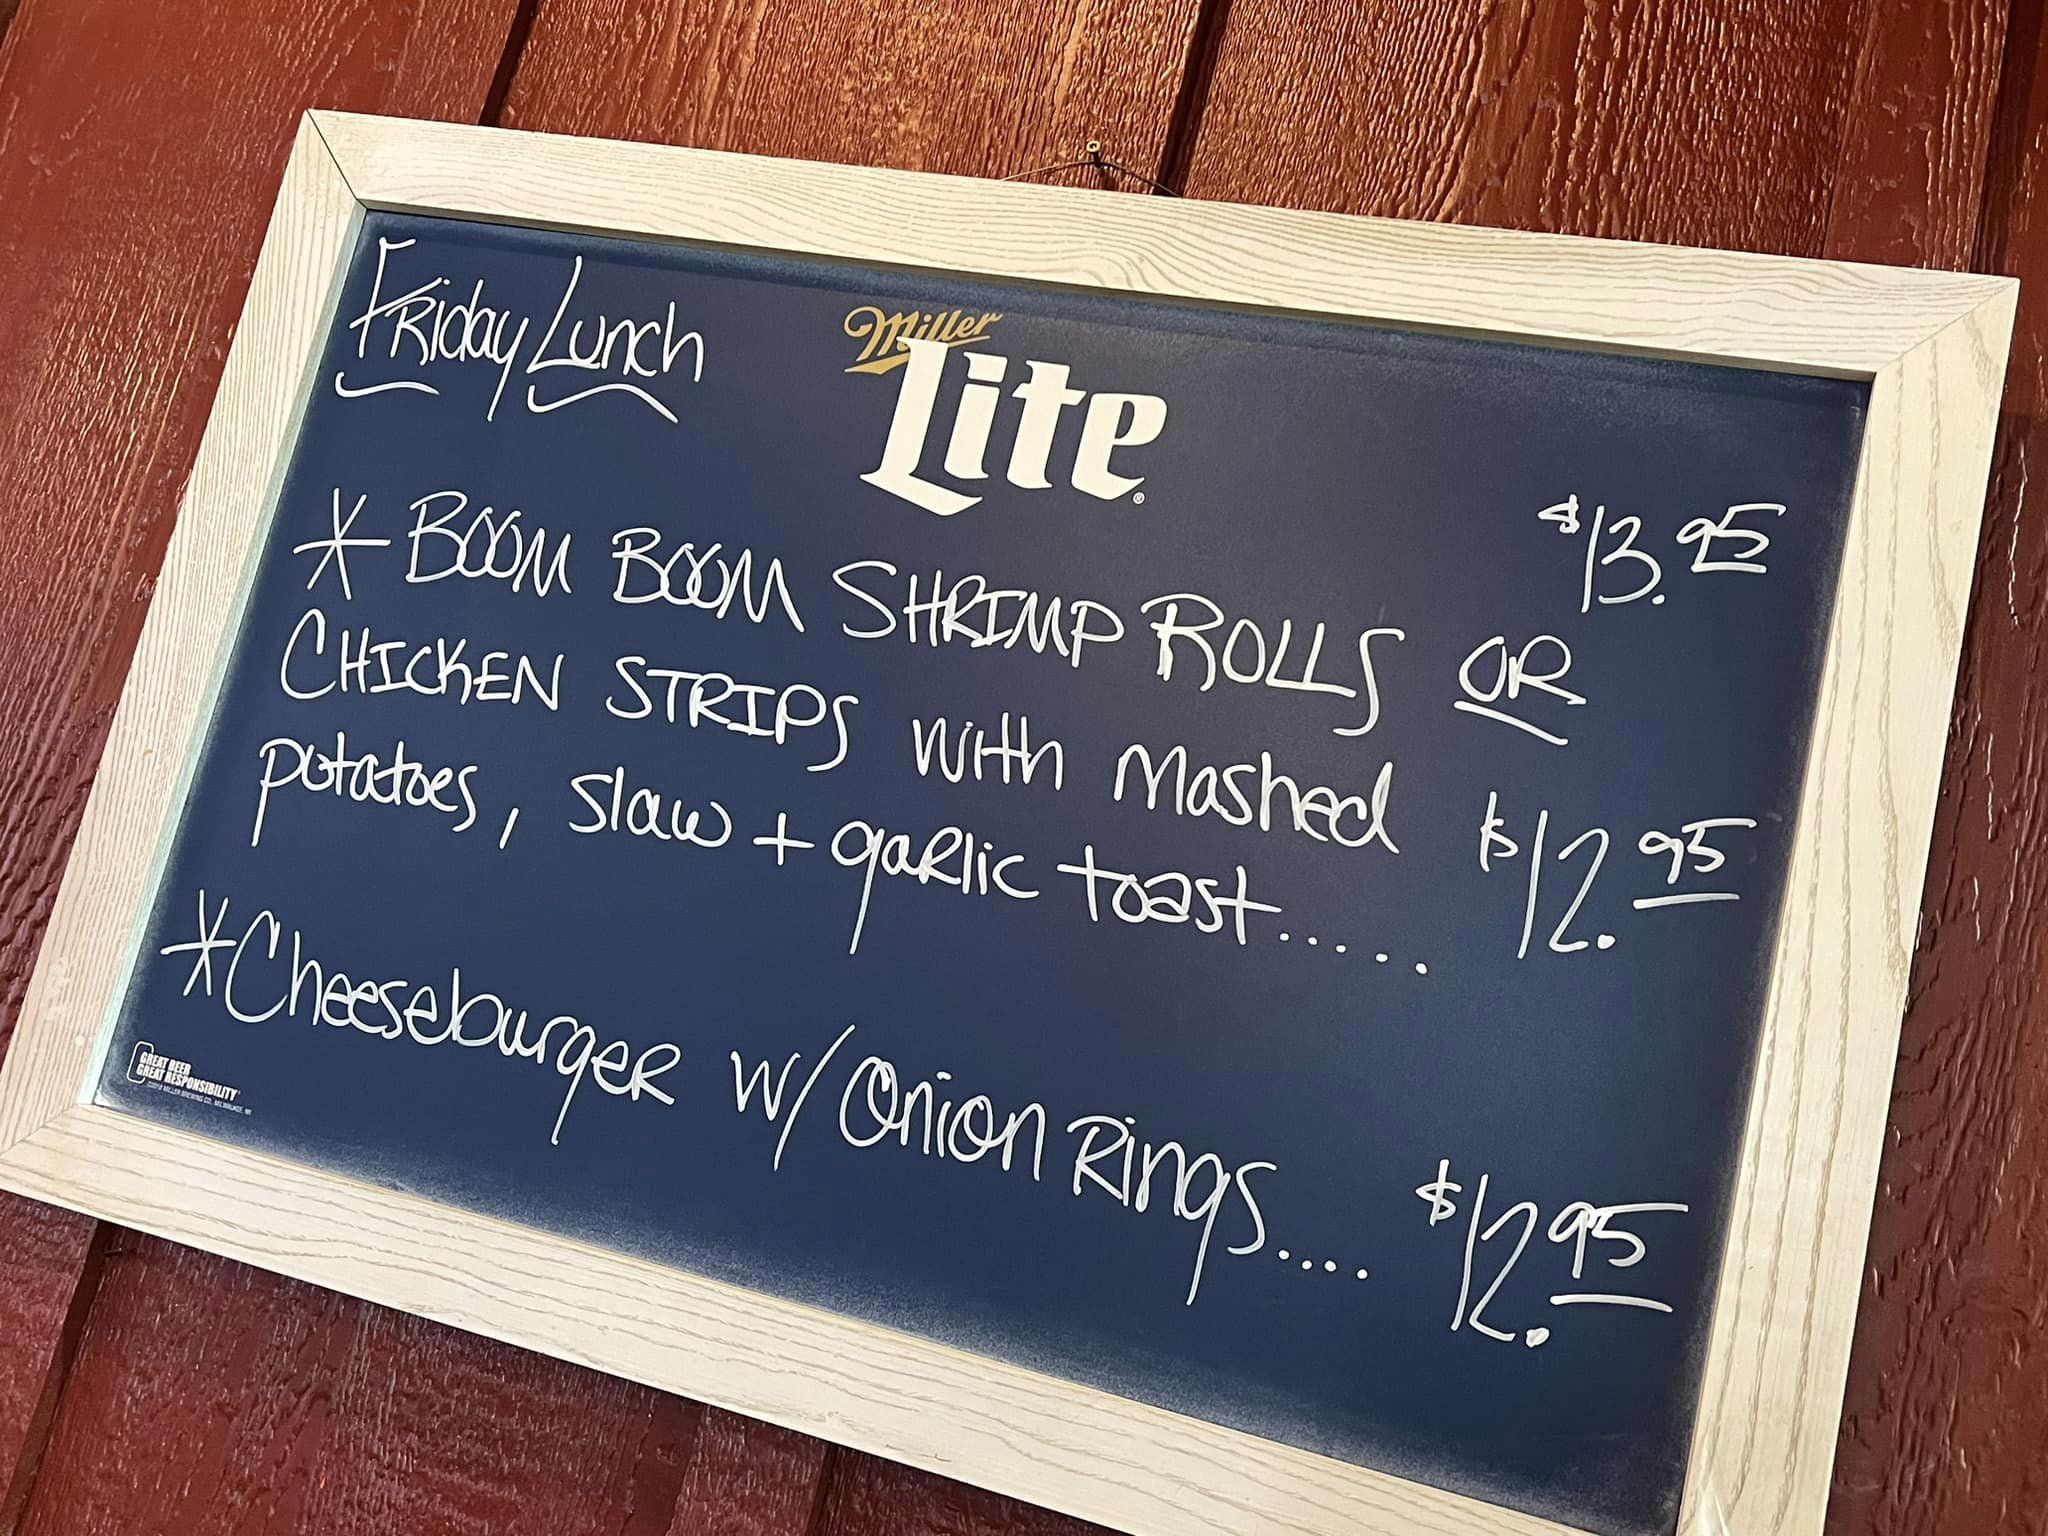 Friday Lunch
Miller
Lite®
* BOOM BOOM SHRIMP ROLLS OR $13.95
CHICKEN STRIPS with mashed
potatoes, slaw + garlic toast..... $12.95
* Cheeseburger w/ Onion Rings.... $12.95
GREAT BEER
GREAT RESPONSIBILITY®
©2018 MILLER BREWING CO., MILWAUKEE, WI